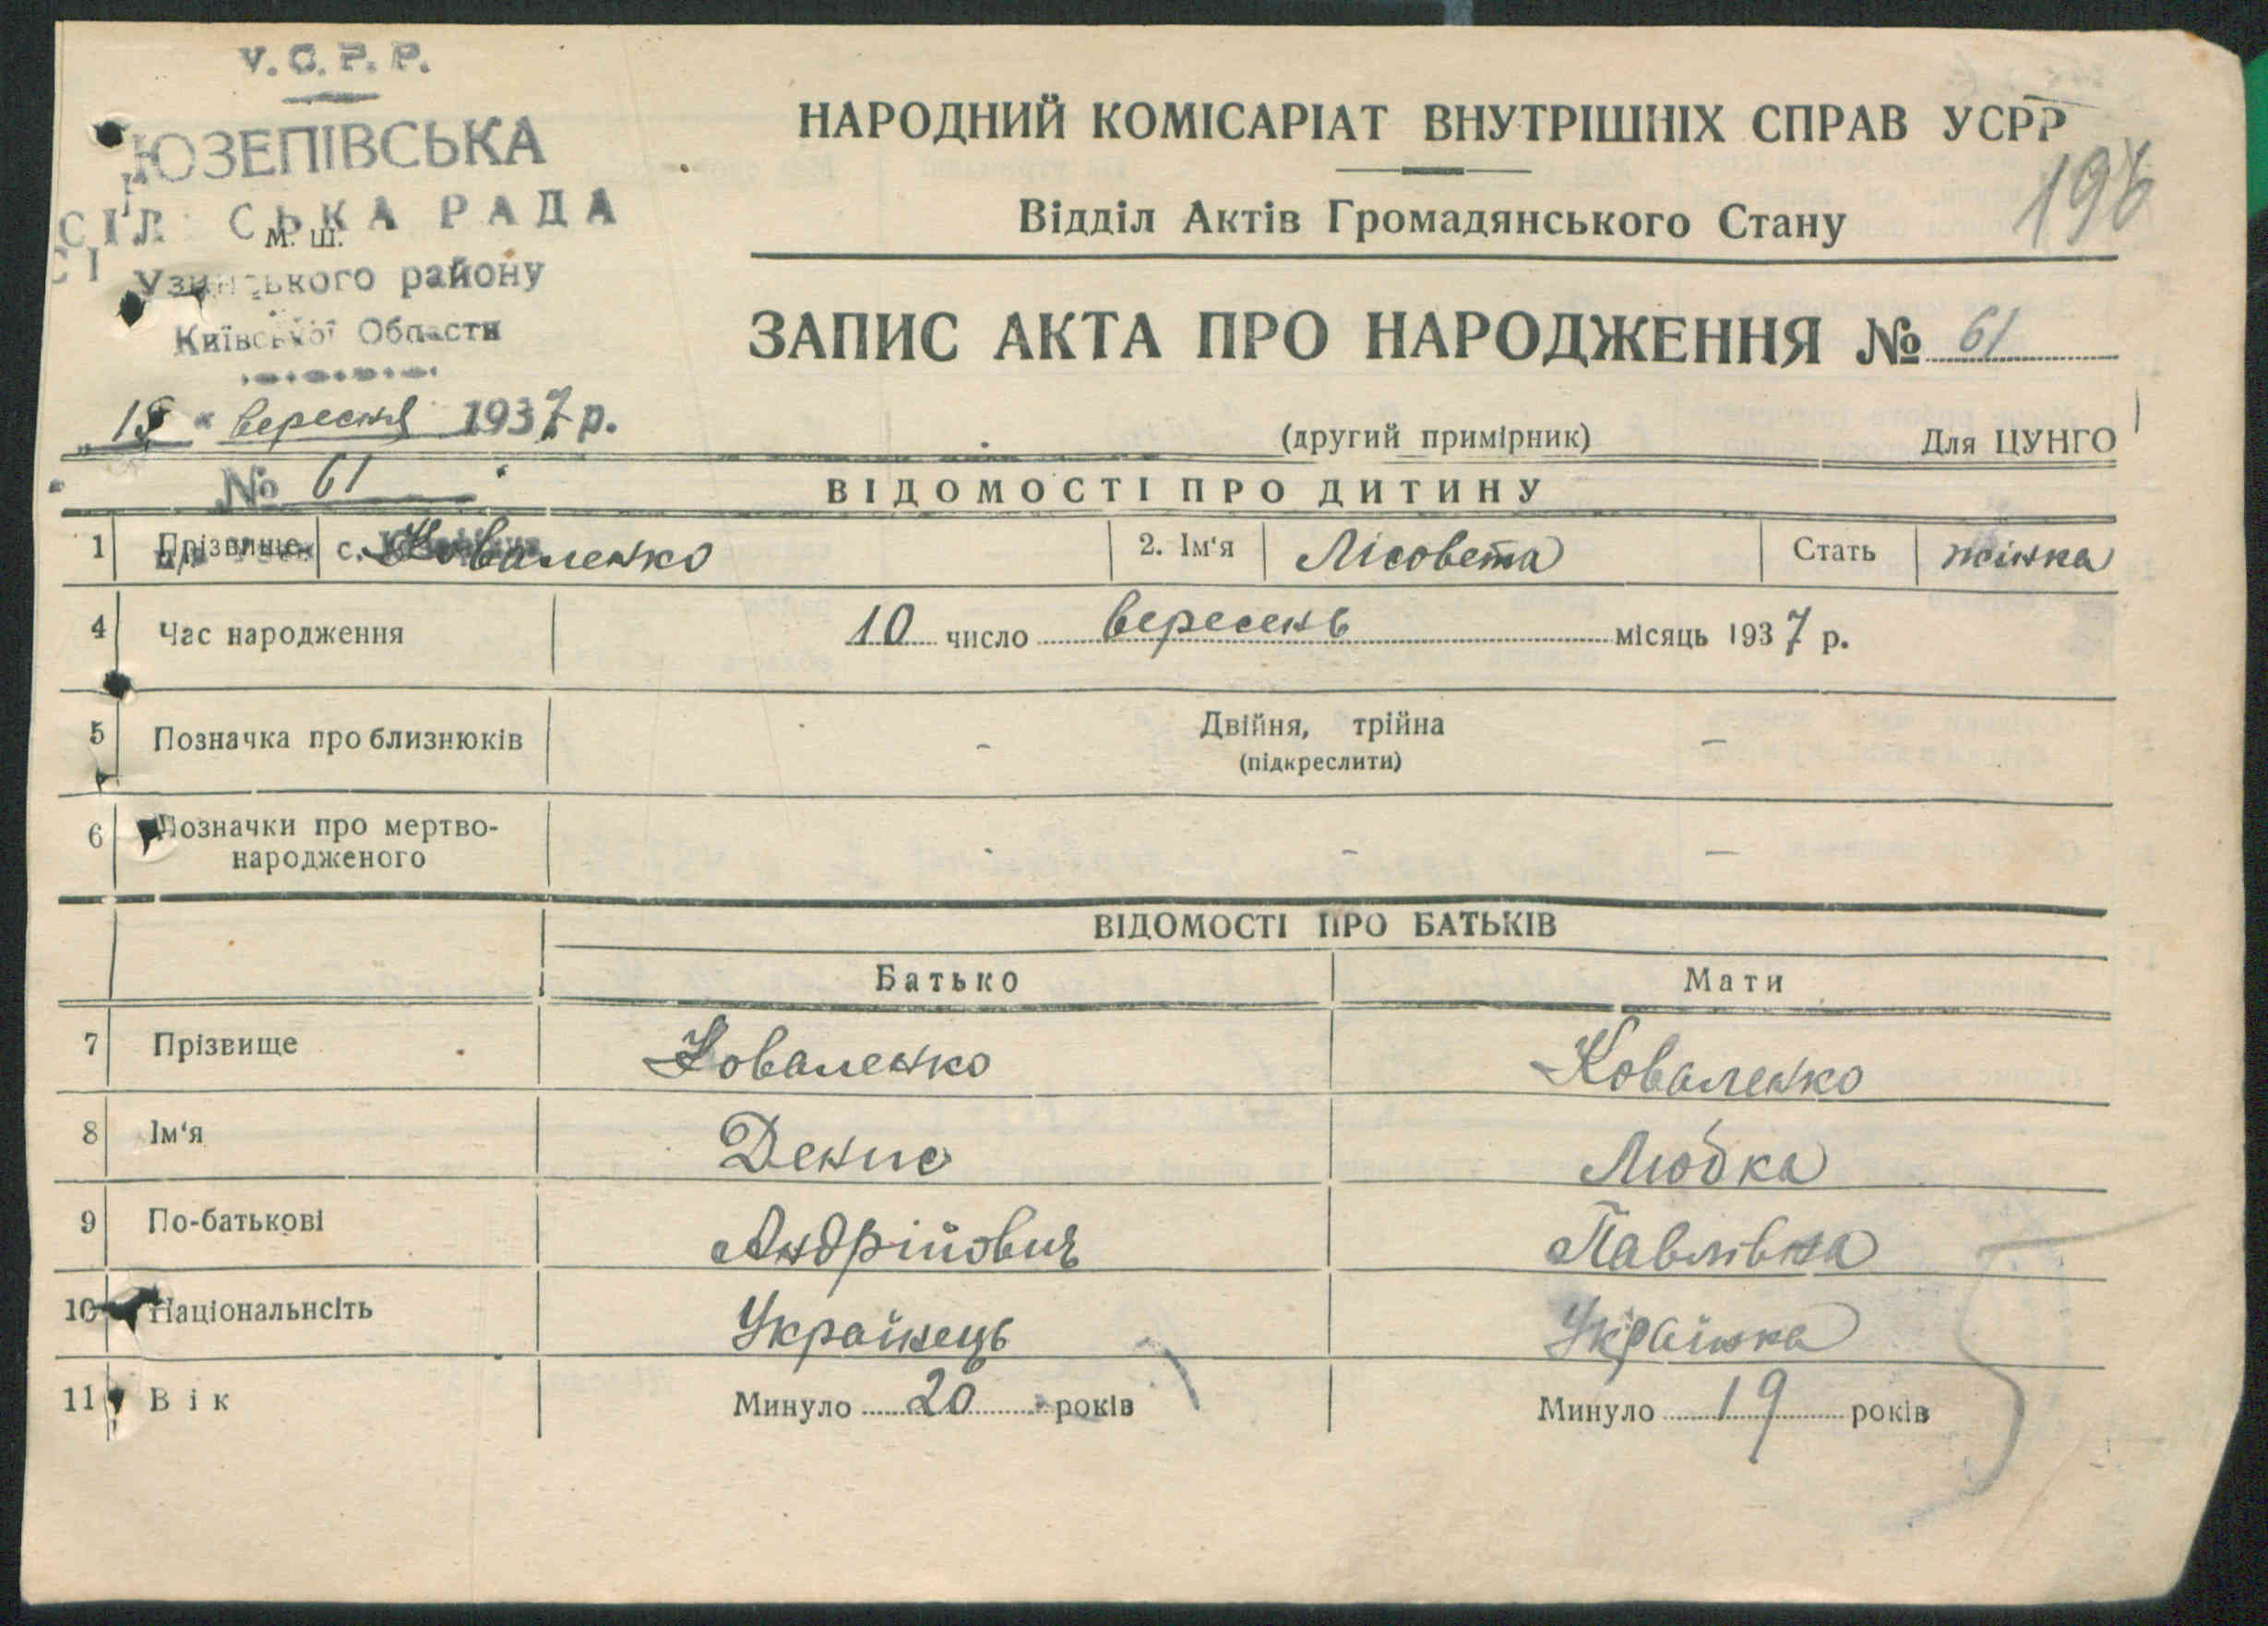 У.С.Р.Р.
ЮЗЕПІВСЬКА
СІЛЬСЬКА РАДА
м. ш.
Узинського району
Київської Области
„ 15 " вересня 1937 р.
№ 61
НАРОДНИЙ КОМІСАРІАТ ВНУТРІШНІХ СПРАВ УСРР
196
Відділ Актів Громадянського Стану
ЗАПИС АКТА ПРО НАРОДЖЕННЯ № 61
(другий примірник) Для ЦУНГО
ВІДОМОСТІ ПРО ДИТИНУ
1 Прізвище с. Коваленко 2. Ім'я Лісовета Стать жінка
4 Час народження 10 число вересень місяць 1937 р.
5 Позначка про близнюків - Двійня, трійна -
(підкреслити)
6 Позначки про мертво-
народженого - - -
ВІДОМОСТІ ПРО БАТЬКІВ
Батько Мати
7 Прізвище Коваленко Коваленко
8 Ім'я Денис Любка
9 По-батькові Андрійович Павлівна
10 Національнсіть Українець Українка
11 Вік Минуло 20 років Минуло 19 років